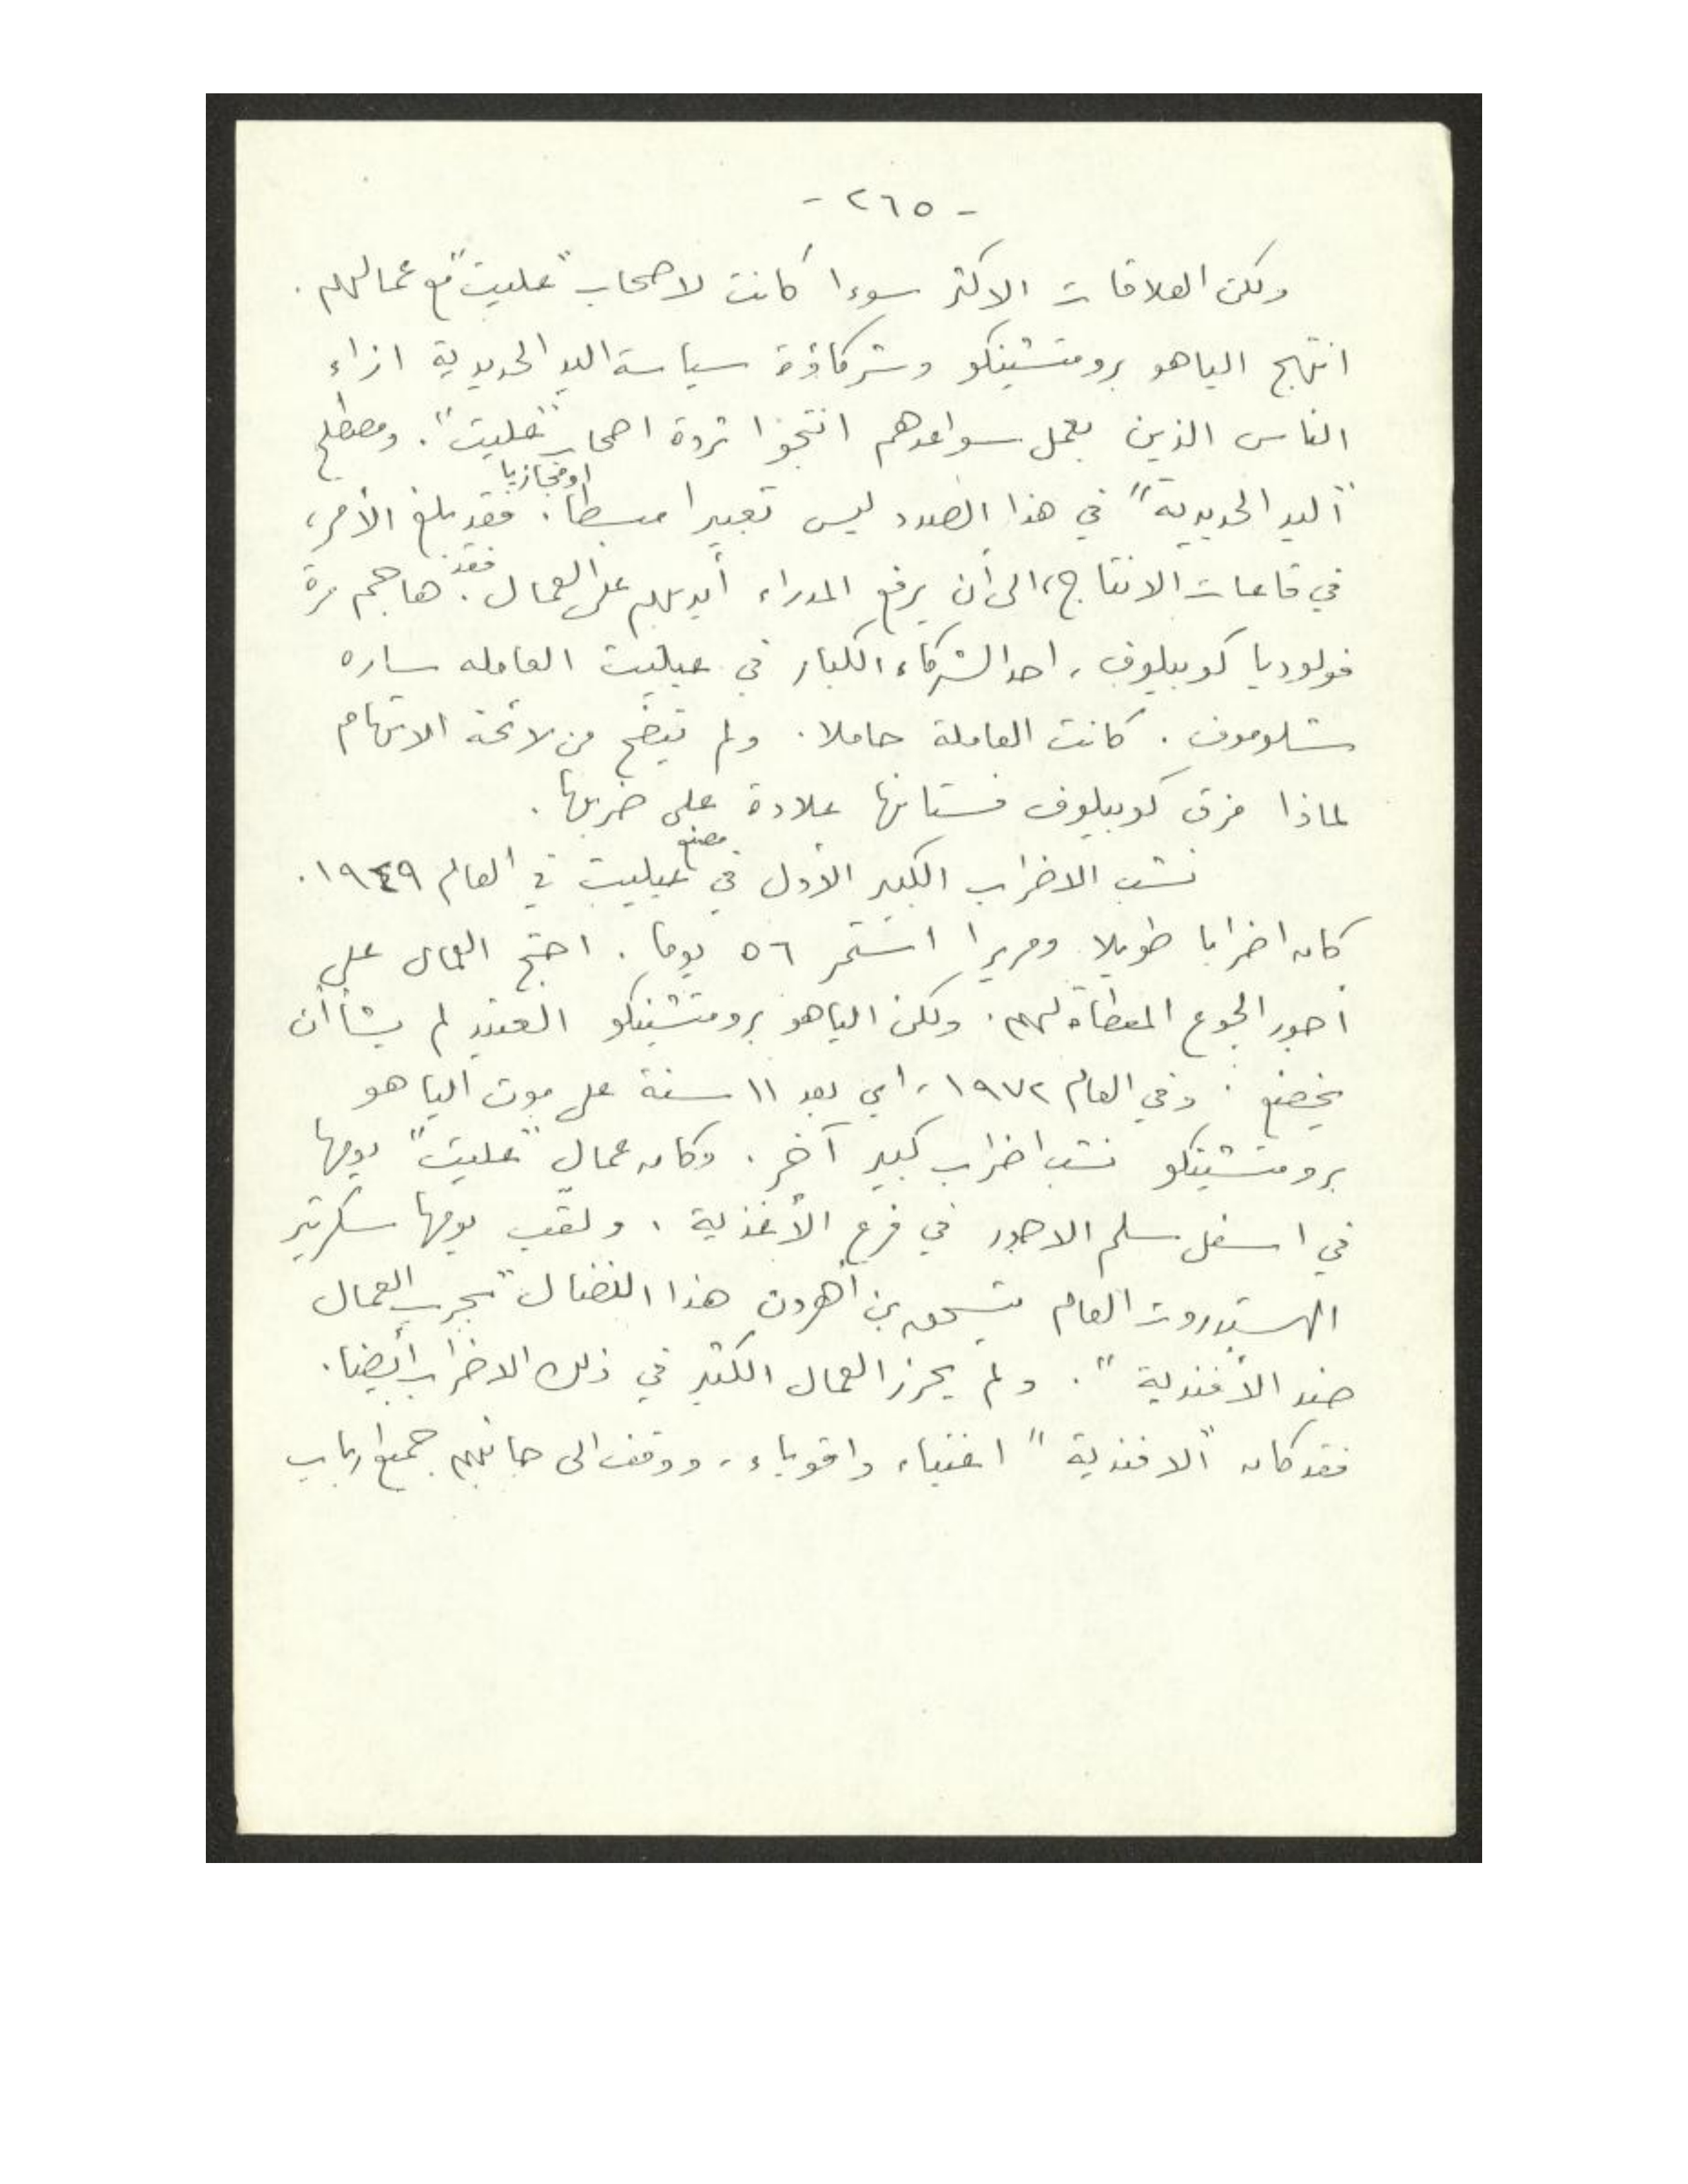 - ٢٦٥ -
ولكن العلاقات الاكثر سوءا كانت لاصحاب "عليت" مع عمالهم.
انتهج الياهو برومتشينكو وشركاؤه سياسة اليد الحديدية ازاء
الناس الذين بعمل سواعدهم انتجوا ثروة اصحاب "عليت". ومصطلح
او مجازيا
"اليد الحديدية" في هذا الصدد ليس تعبيرا مبسطا. فقد بلغ الأمر،
في قاعات الانتاج، الى أن يرفع المدراء أيديهم على العمال. فقد هاجم مرة
فولوديا كوبيلوف، احد الشركاء الكبار في عيليت العامله ساره
شلوموف. كانت العاملة حاملا. ولم تتضح من لائحة الاتهام
لماذا مزق كوبيلوف فستانها علاوة على ضربها.
نشب الاضراب الكبير الأول في مصنع عيليت في العام ١٩٤٩.
كان اضرابا طويلا ومريرا استمر ٥٦ يوما. احتج العمال على
أجور الجوع المعطاة لهم. ولكن الياهو برومتشينكو العنيد لم يشأ أن
يخضع. وفي العام ١٩٧٢، اي بعد ١١ سنة على موت الياهو
برومتشينكو نشب اضراب كبير آخر. وكان عمال "عليت" يومها
في اسفل سلم الاجور في فرع الأغذية. ولقّب يومها سكرتير
الهستدروت العام يتسحق بن أهرون هذا النضال "بحرب العمال
ضد الأفندية". ولم يحرز العمال الكثير في ذلك الاضراب أيضا.
فقد كان "الافندية" اغنياء واقوياء، ووقف الى جانبهم جميع ارباب